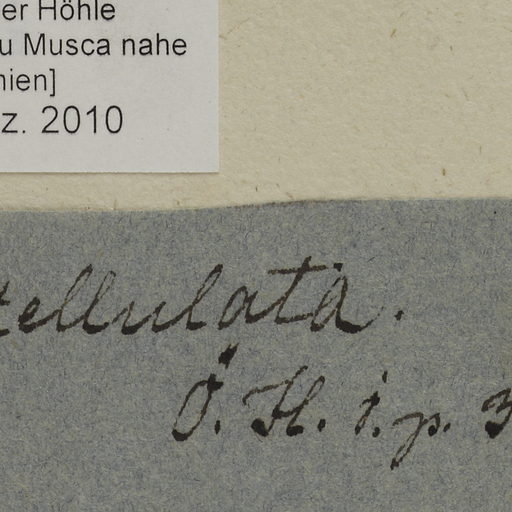 er Höhle
u Musca nahe
nien]
z. 2010
tellulata.
Ö. H. i. p. 3